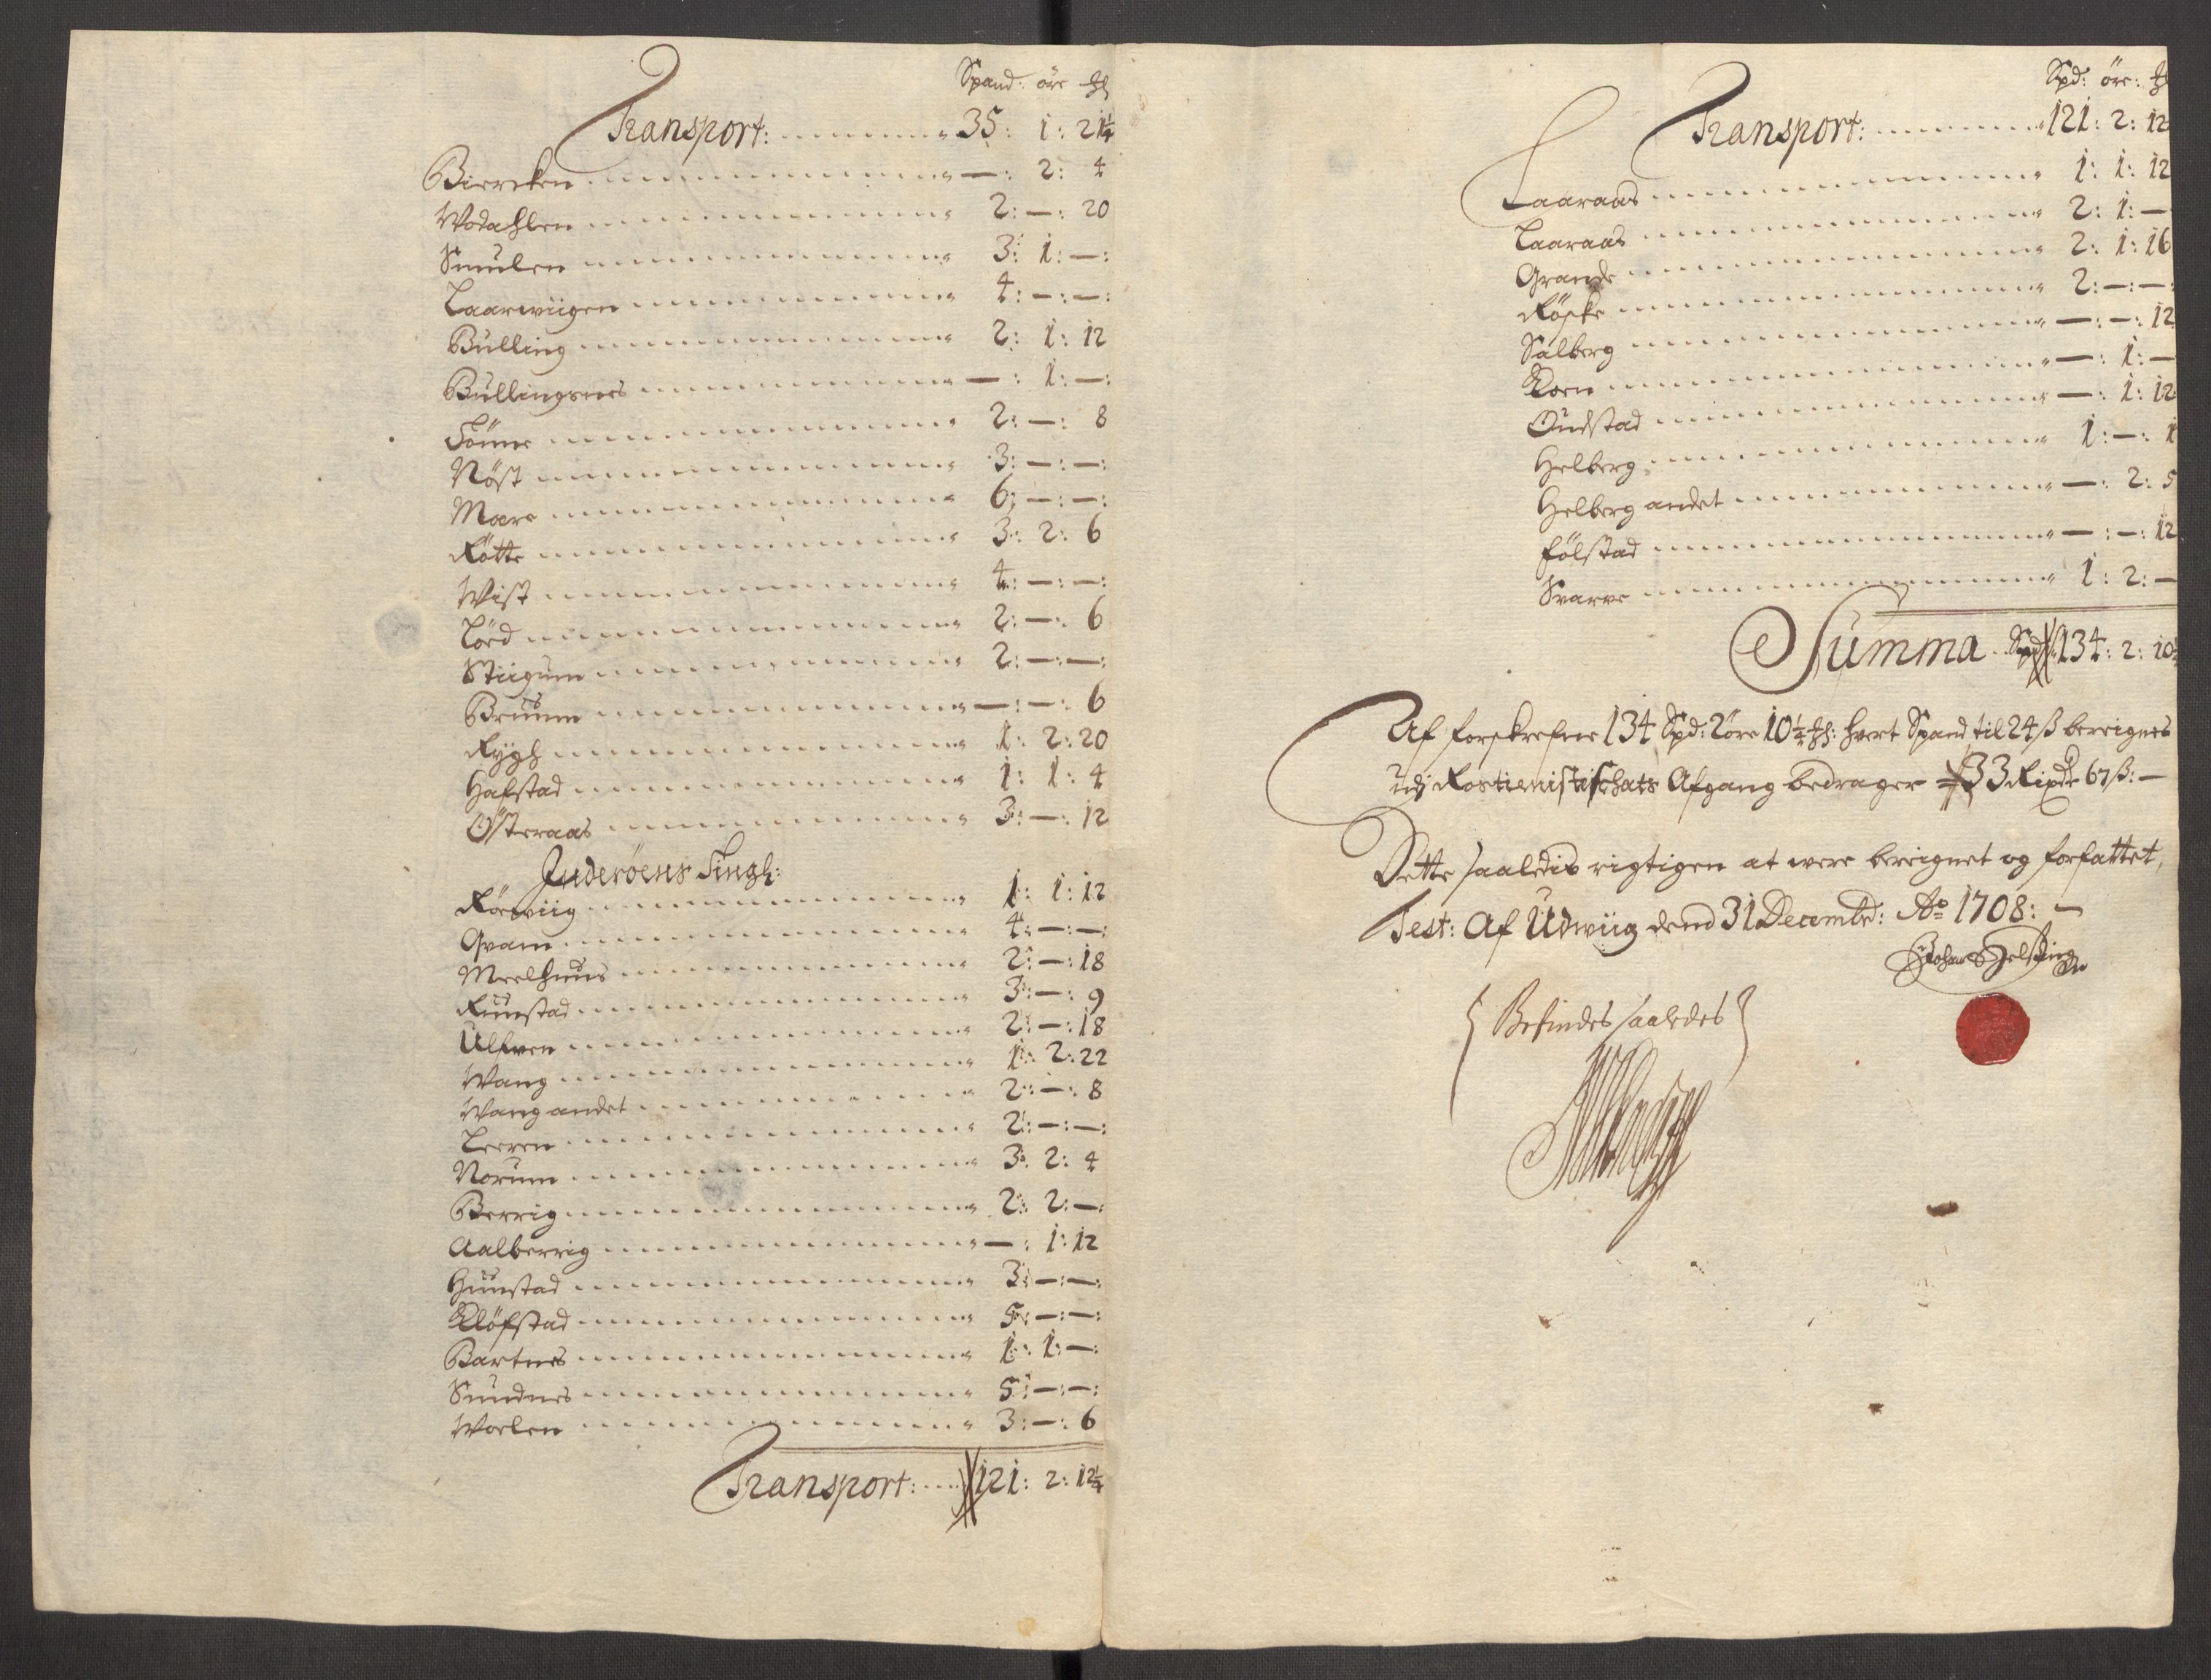 Spand: öre
Transport: 35: 1: 21¼
Biercken —: 2: 4
Wodahlen 2: —: 20
Smulen 3: 1: —:
Laarwiigen 4: —: —:
Bulling 2: 1: 12
Bullingsnes —: 1: —:
Tönne 2: —: 8
Nöst 3: —: —:
Mære 6: —: —:
Rötte 3: 2: 6
Wist 4: —: —:
Lörd 2: —: 6
Stiigum 2: —: —:
Bruum —: —: 6
Rygh 1: 2: 20
Hafstad 1: 1: 4
Österaas 3: —: 12
Inderöens Tingh:
Rörwiig 1: 1: 12
Qvam 4: —: —:
Meelhuus 2: —: 18
Ruustad 3: —: 9
Ulfwen 2: —: 18
Wang 1: 2: 22
Wang andet 2: —: 8
Leeren 2: —: —:
Norum 3: 2: 4
Berrig 2: 2: —:
Aalberrig —: 1: 12
Huustad 3: —: —:
Klöfstad 5: —: —:
Bartnes 1: 1: —:
Sundnes 5: —: —:
Woelen 3: —: 6
Transport: 121: 2: 12¼
Spd: öre:
Transport: 121: 2: 12
Laaraas 1: 1: 12
Laaraas 2: 1: —
Grande 2: 1: 16
Röske 2: —: —:
Salberg —: —: 12
Koen —: 1: —
Oudstad —: 1: 12
Helberg 1: —: 1
Helberg andet —: 2: 5
Fölstad —: —: 12
Svarve 1: 2: —
Summa Spd 134: 2: 10
Af forskrefne 134 Spd: 2 öre 10¼ hvert Spand til 24 ß bereignes
udj Rostienistischats Afgang bedrager 33 Rixdr 67 ß: —
Dette saaledis rigtigen at were bereignet og forfattet,
Test: Af Udwiig dend 31 Decembr: Ao 1708: —
Befindes saaledes